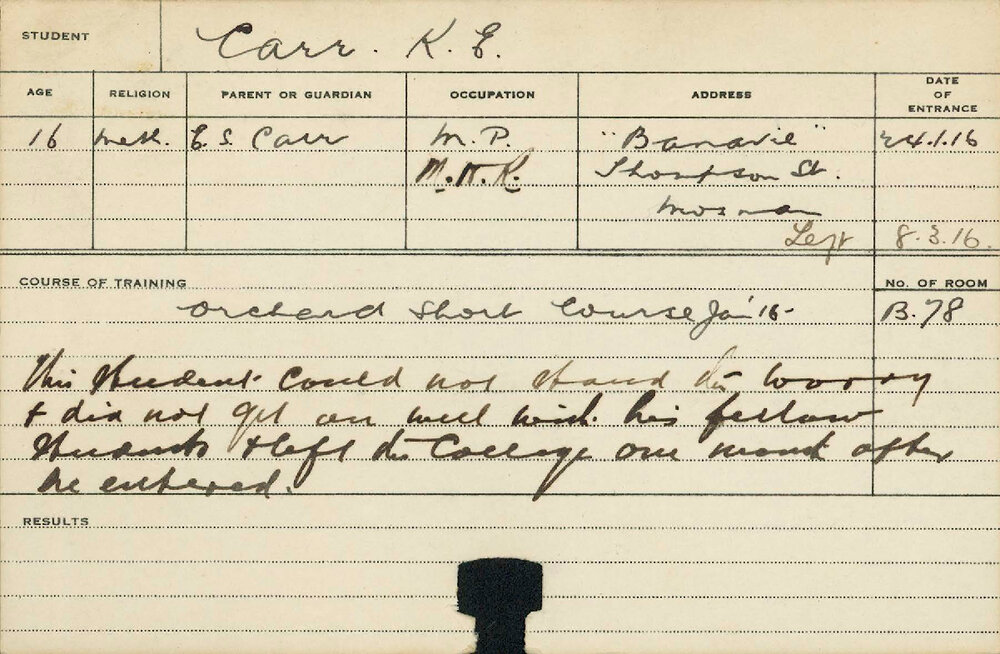 STUDENT Carr. K. E.
AGE RELIGION PARENT OR GUARDIAN OCCUPATION ADDRESS DATE OF ENTRANCE
16 Meth. E. S. Carr M.P. "Banavie" 24.1.16
M.H.R. Thompson St.
Mosman
Left 8.3.16.
COURSE OF TRAINING No. OF ROOM
Orchard Short Course Jan '16 - B.78
This student could not stand the worry
& did not get on well with his fellow
students & left the College one month after
he entered.
RESULTS